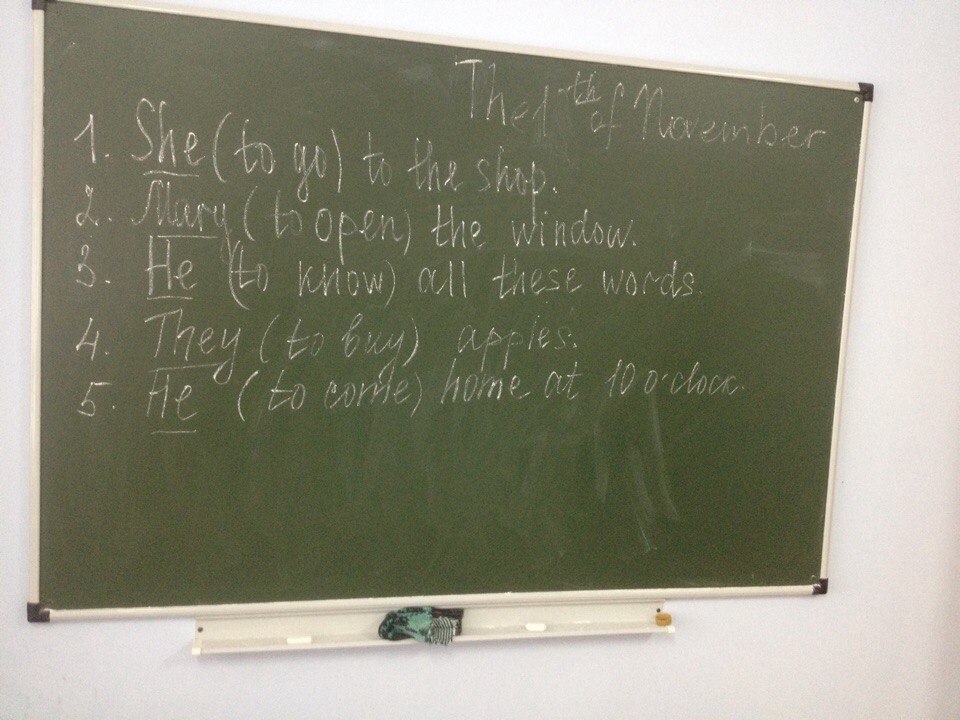 The 1th of November
1. She (to go) to the shop.
2. Mary (to open) the window.
3. He (to know) all these words.
4. They (to buy) apples.
5. He (to come) home at 10 o'clock.